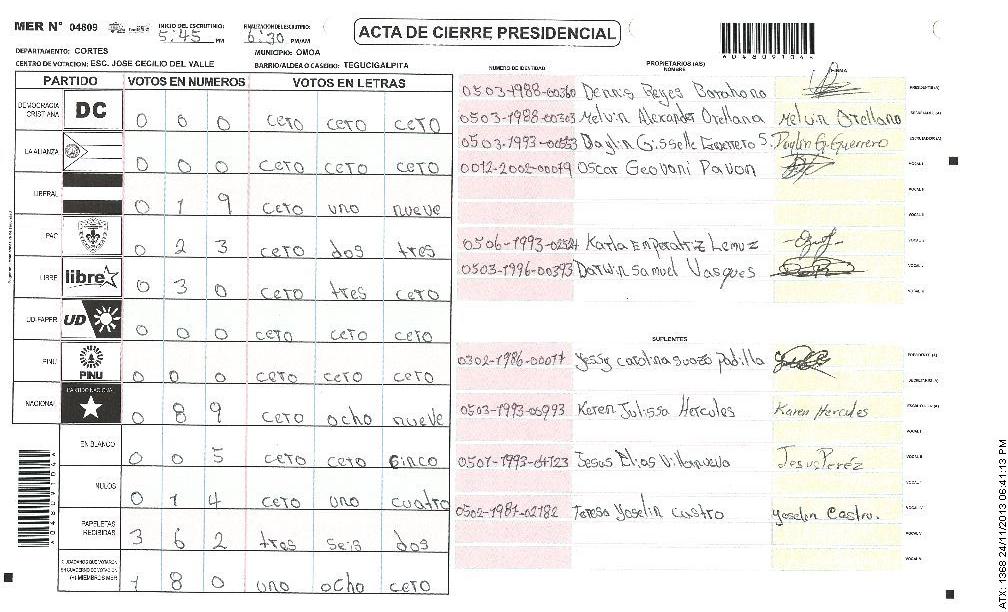 MER N° 04809
INICIO DEL ESCRUTINIO: 5:45 PM
FINALIZACION DEL ESCRUTINIO: 6:30 PM/AM
ACTA DE CIERRE PRESIDENCIAL
DEPARTAMENTO: CORTES
MUNICIPIO: OMOA
CENTRO DE VOTACION: ESC. JOSE CECILIO DEL VALLE
BARRIO/ALDEA O CASERIO: TEGUCIGALPITA
PARTIDO VOTOS EN NUMEROS VOTOS EN LETRAS
DEMOCRACIA CRISTIANA DC 0 0 0 cero cero cero
LA ALIANZA 0 0 0 cero cero cero
LIBERAL 0 1 9 cero uno nueve
PAC 0 2 3 cero dos tres
LIBRE libre 0 3 0 cero tres cero
UD-FAPER UD 0 0 0 cero cero cero
PINU PINU 0 0 0 cero cero cero
NACIONAL PARTIDO NACIONAL 0 8 9 cero ocho nueve
EN BLANCO 0 0 5 cero cero cinco
NULOS 0 1 4 cero uno cuatro
PAPELETAS RECIBIDAS 3 6 2 tres seis dos
(+) MIEMBROS MER 1 8 0 uno ocho cero
NUMERO DE IDENTIDAD
PROPIETARIOS (AS)
NOMBRE
FIRMA
0503-1988-00360 Dennis Reyes Barahona PRESIDENTE (A)
0503-1988-00303 Melvin Alexander Orellana Melvin Orellana SECRETARIO (A)
0503-1993- Daylin Gisselle Guerrero S. Daylin G. Guerrero ESCRUTADOR (A)
0012-2002-00019 Oscar Geovani Pavon VOCAL I
0506-1993- Karla Emperatriz Lemuz
0503-1996-00393 Darwin Samuel Vasques
SUPLENTES
0302-1986-00077 Yessy Carolina Suazo Padilla PRESIDENTE (A)
SECRETARIO (A)
0503-1993-00993 Keren Julissa Hercules Karen Hercules
0501-1993-04723 Jesus Elias Villanueva Jesus Perez
0502-1981-02182 Teresa Yoselin Castro Yoselin Castro.
ATX: 1368 24/11/2013 06:41:13 PM